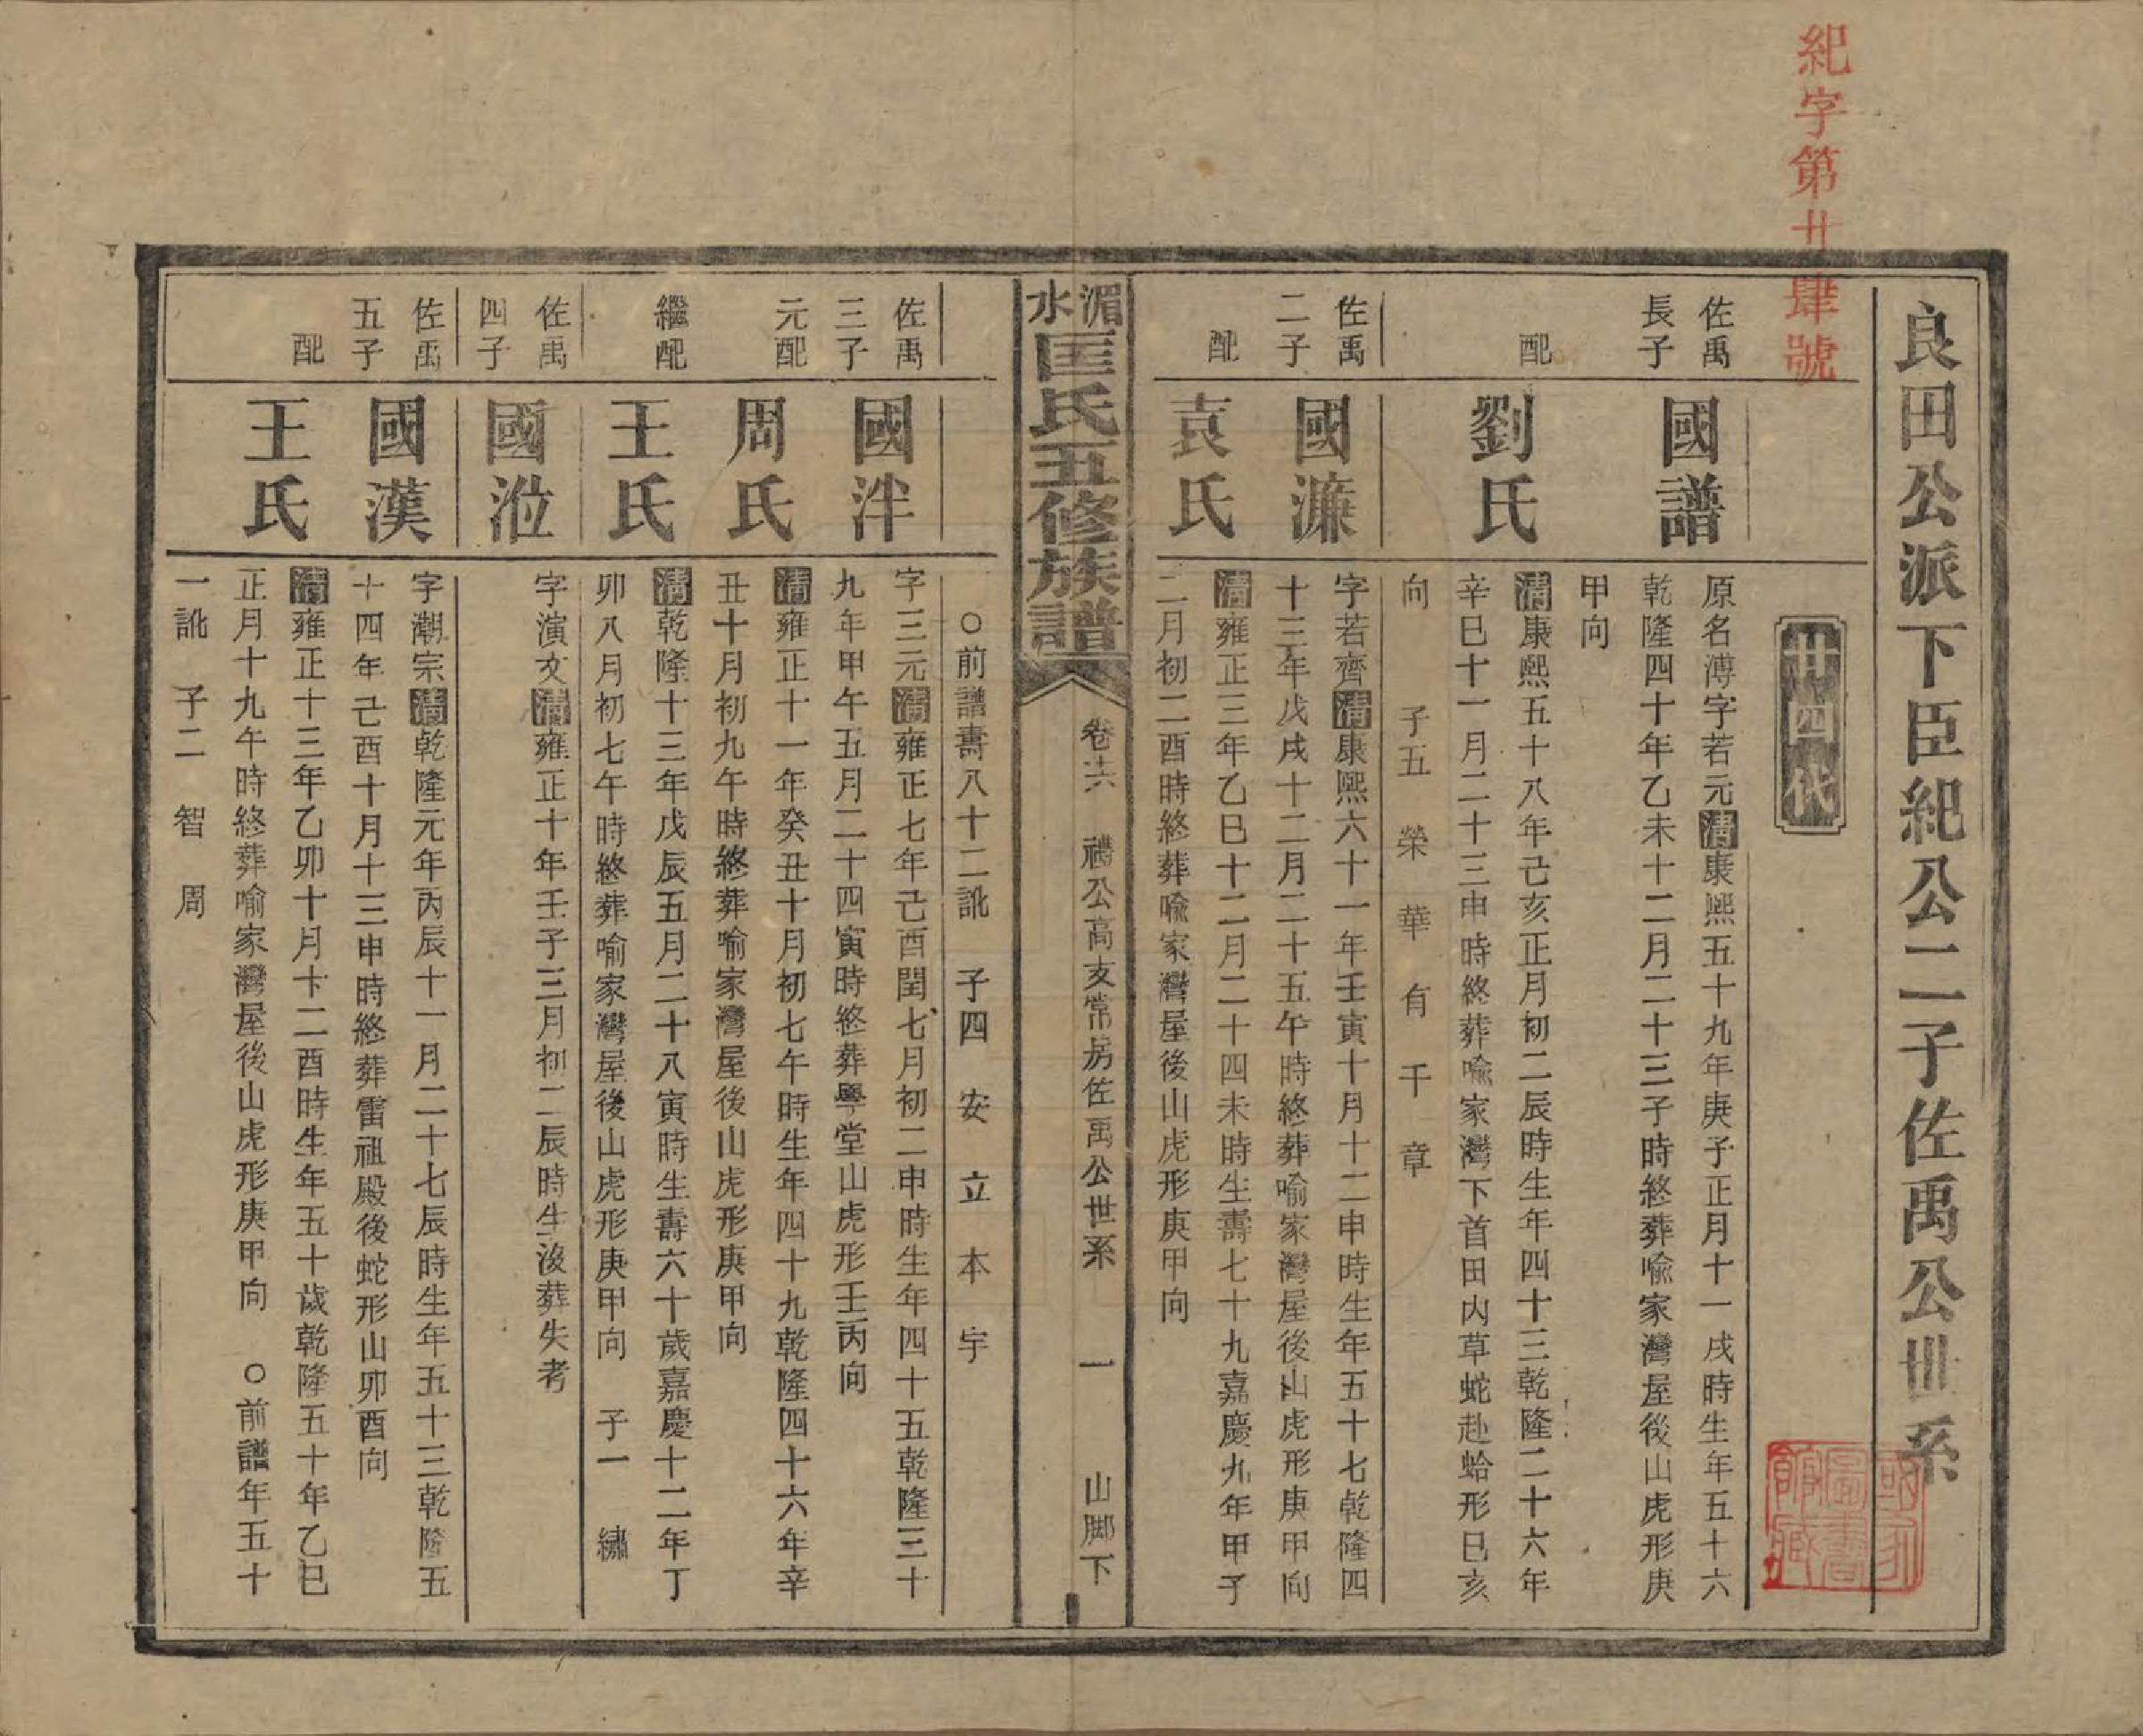 紀字第廿肆號
良田公派下臣紀公二子佐禹公世系
廿四代
佐禹
長子
國譜
原名溥字若元清康熙五十九年庚子正月十一戌時生年五十六
乾隆四十年乙未十二月二十三子時終葬喩家灣屋後山虎形庚
甲向
配
劉氏
清康熙五十八年己亥正月初二辰時生年四十三乾隆二十六年
辛巳十一月二十三申時終葬喩家灣下首田内草蛇赴蛤形巳亥
向 子五 榮 華 有 干 章
佐禹
二子
國濂
字若齊清康熙六十一年壬寅十月十二申時生年五十七乾隆四
十三年戊戌十二月二十五午時終葬喩家灣屋後山虎形庚甲向
配
袁氏
清雍正三年乙巳十二月二十四未時生壽七十九嘉慶九年甲子
二月初二酉時終葬喩家灣屋後山虎形庚甲向
湄水匡氏五修族譜
卷六 禮公高支常房佐禹公世系 一 山脚下
○前譜壽八十二訛 子四 安 立 本 宇
佐禹
三子
國泮
字三元清雍正七年己酉閏七月初二申時生年四十五乾隆三十
九年甲午五月二十四寅時終葬學堂山虎形壬丙向
元配
周氏
清雍正十一年癸丑十月初七午時生年四十九乾隆四十六年辛
丑十月初九午時終葬喩家灣屋後山虎形庚甲向
繼配
王氏
清乾隆十三年戊辰五月二十八寅時生壽六十歲嘉慶十二年丁
卯八月初七午時終葬喩家灣屋後山虎形庚甲向 子一 繡
佐禹
四子
國涖
字演文清雍正十年壬子三月初二辰時生没葬失考
佐禹
五子
國漢
字潮宗清乾隆元年丙辰十一月二十七辰時生年五十三乾隆五
十四年己酉十月十三申時終葬雷祖殿後蛇形山卯酉向
配
王氏
清雍正十三年乙卯十月十二酉時生年五十歲乾隆五十年乙巳
正月十九午時終葬喩家灣屋後山虎形庚甲向 ○前譜年五十
一訛 子二 智 周
國家圖書館藏